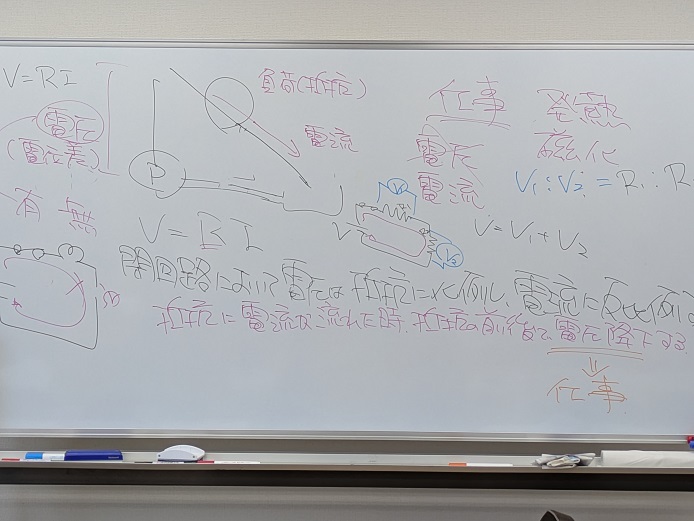 V=RI
電圧
(電位差)
有 無
負荷(抵抗)
電流
P
仕事
電圧
電流
発熱
磁化
V₁:V₂=R₁:R
V=RI
V
V₁
V₂
V=V₁+V₂
閉回路において電圧は抵抗に比例し、電流に反比例
抵抗に電流が流れた時、抵抗の前後で電圧降下する
⇓
仕事